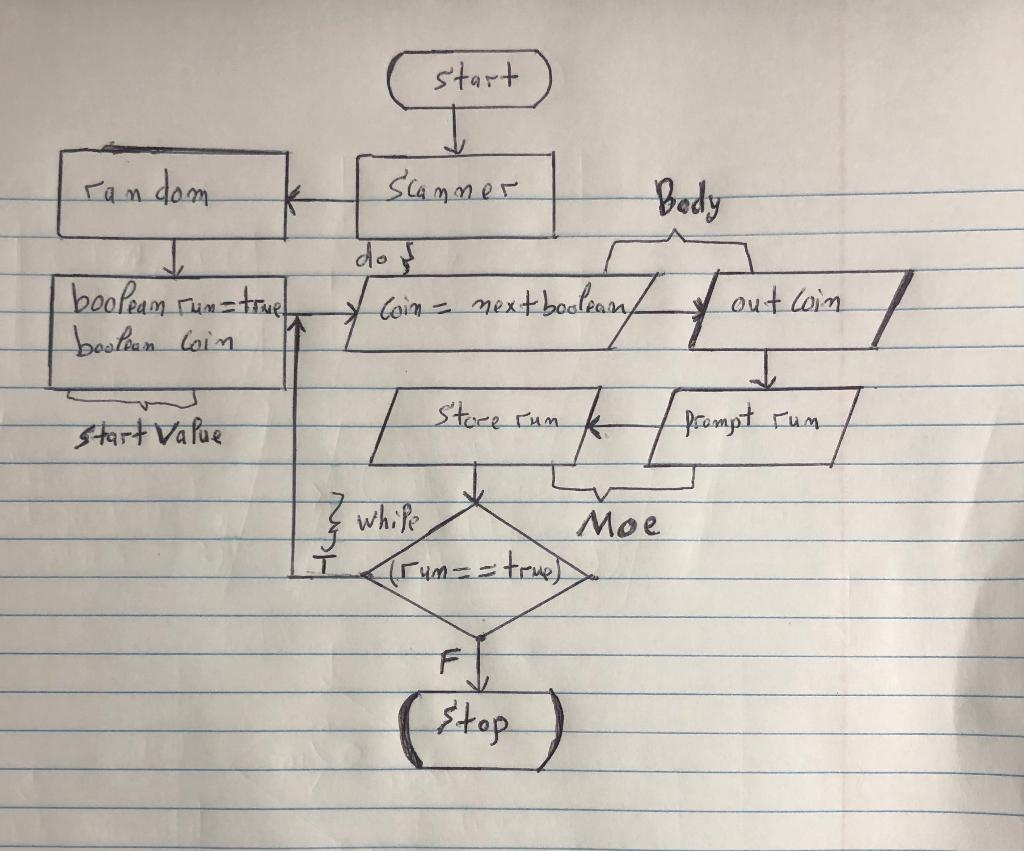 start
scanner
random
do {
Body
boolean run=true
boolean coin
coin = nextboolean
out coin
start value
store run
prompt run
Moe
} while
T
(run==true)
F
stop